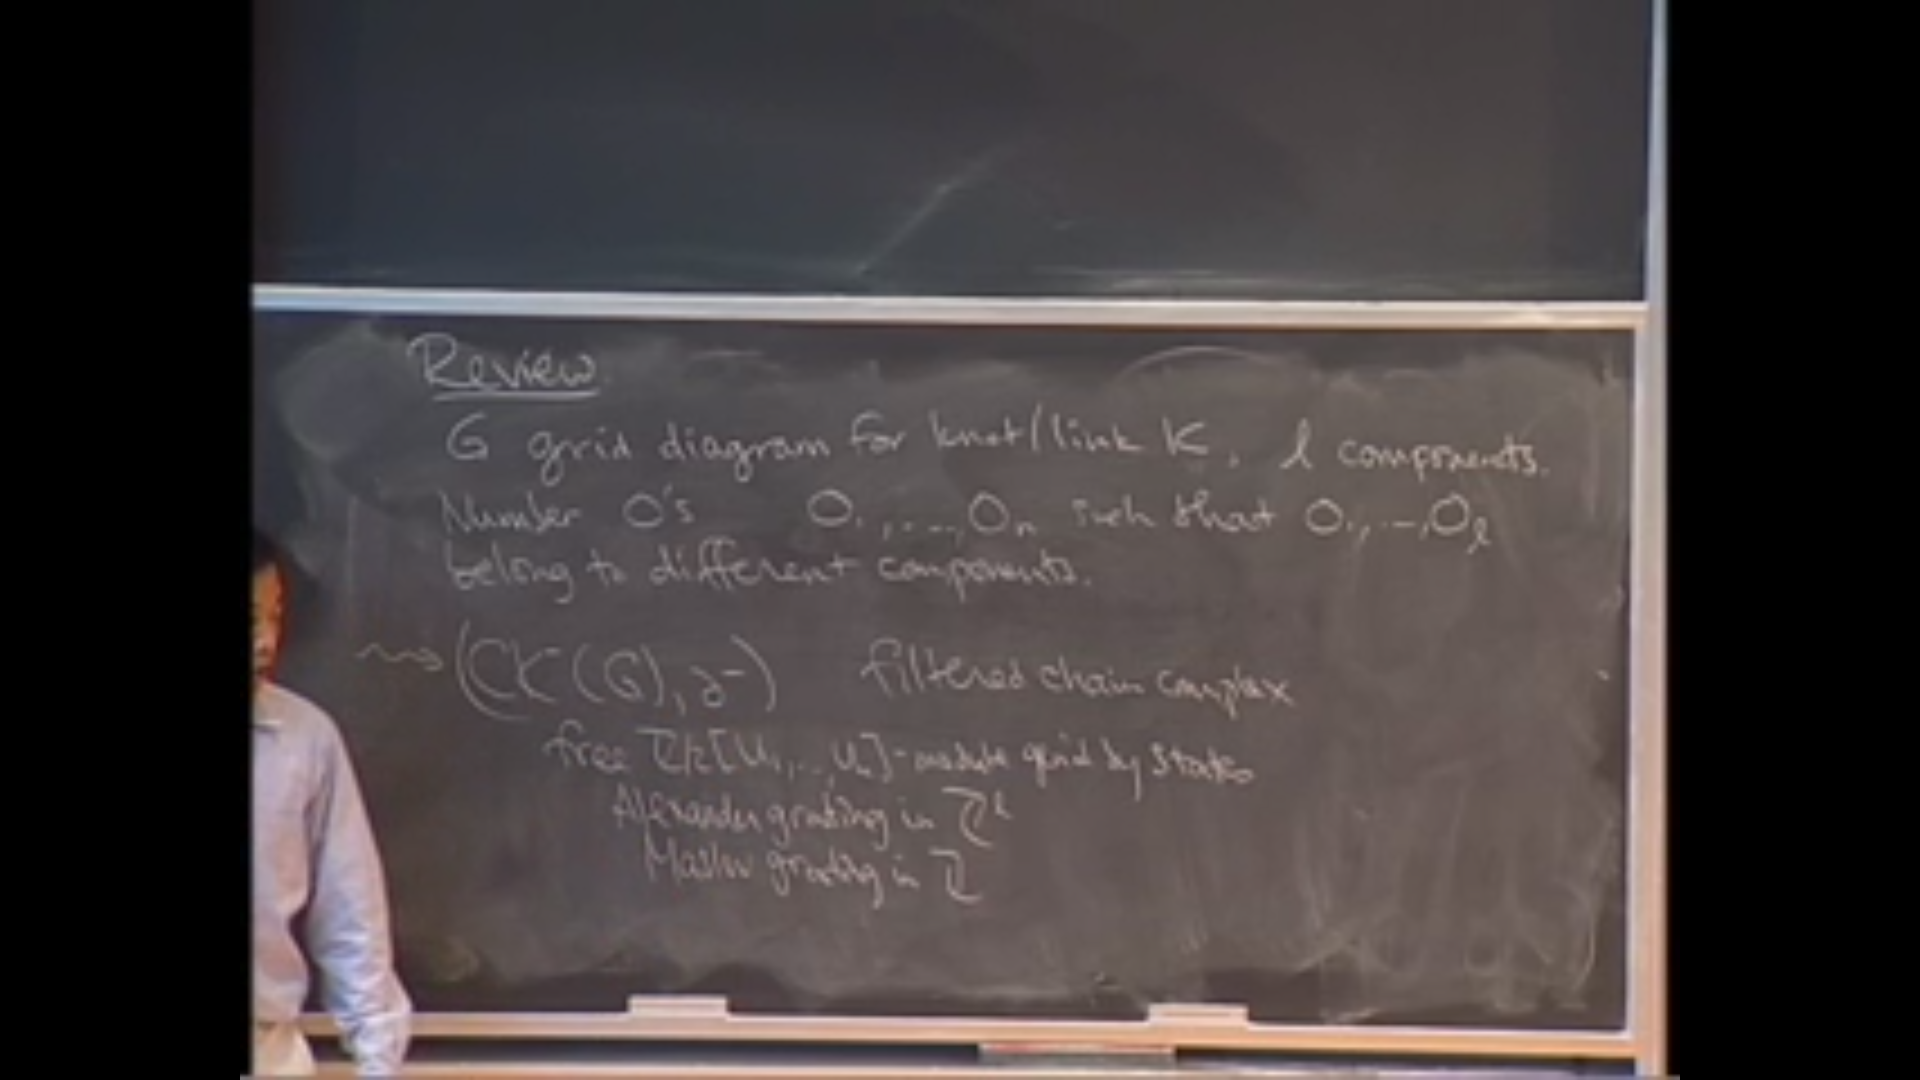 Review
G grid diagram for knot/link K, l components.
Number O's O₁,...,Oₙ such that O₁,...,Oₗ
belong to different components.
⇝ (CK⁻(G), ∂⁻) filtered chain complex
free ℤ/2[U₁,...,Uₙ]-module gen'd by states
Alexander grading in ℤˡ
Maslov grading in ℤ